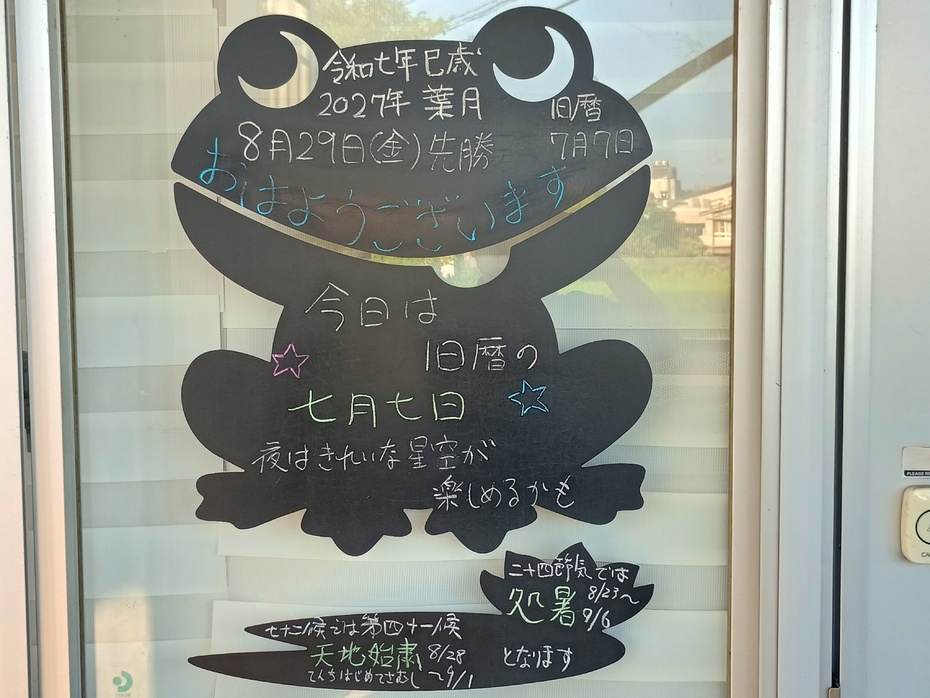 令和七年巳歳
2027年 葉月
旧暦
8月29日(金)先勝
7月7日
おはようございます
今日は
旧暦の
七月七日
夜はきれいな星空が
楽しめるかも
二十四節気では
処暑 8/23〜
9/6
七十二候では第四十一候
天地始粛 8/28
〜9/1
てんちはじめてさむし
となります
PLEASE